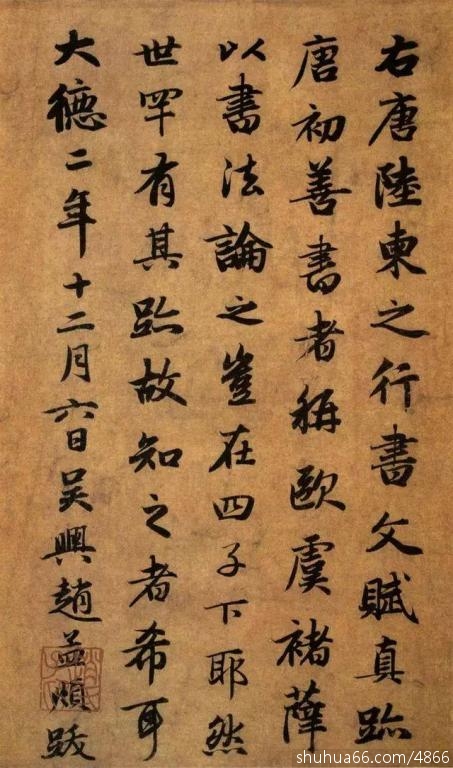 右唐陸柬之行書文賦真跡
唐初善書者稱歐虞褚薛
以書法論之豈在四子下耶然
世罕有其跡故知之者希耳
大德二年十二月六日吳興趙孟頫跋
shuhua66.com/4866